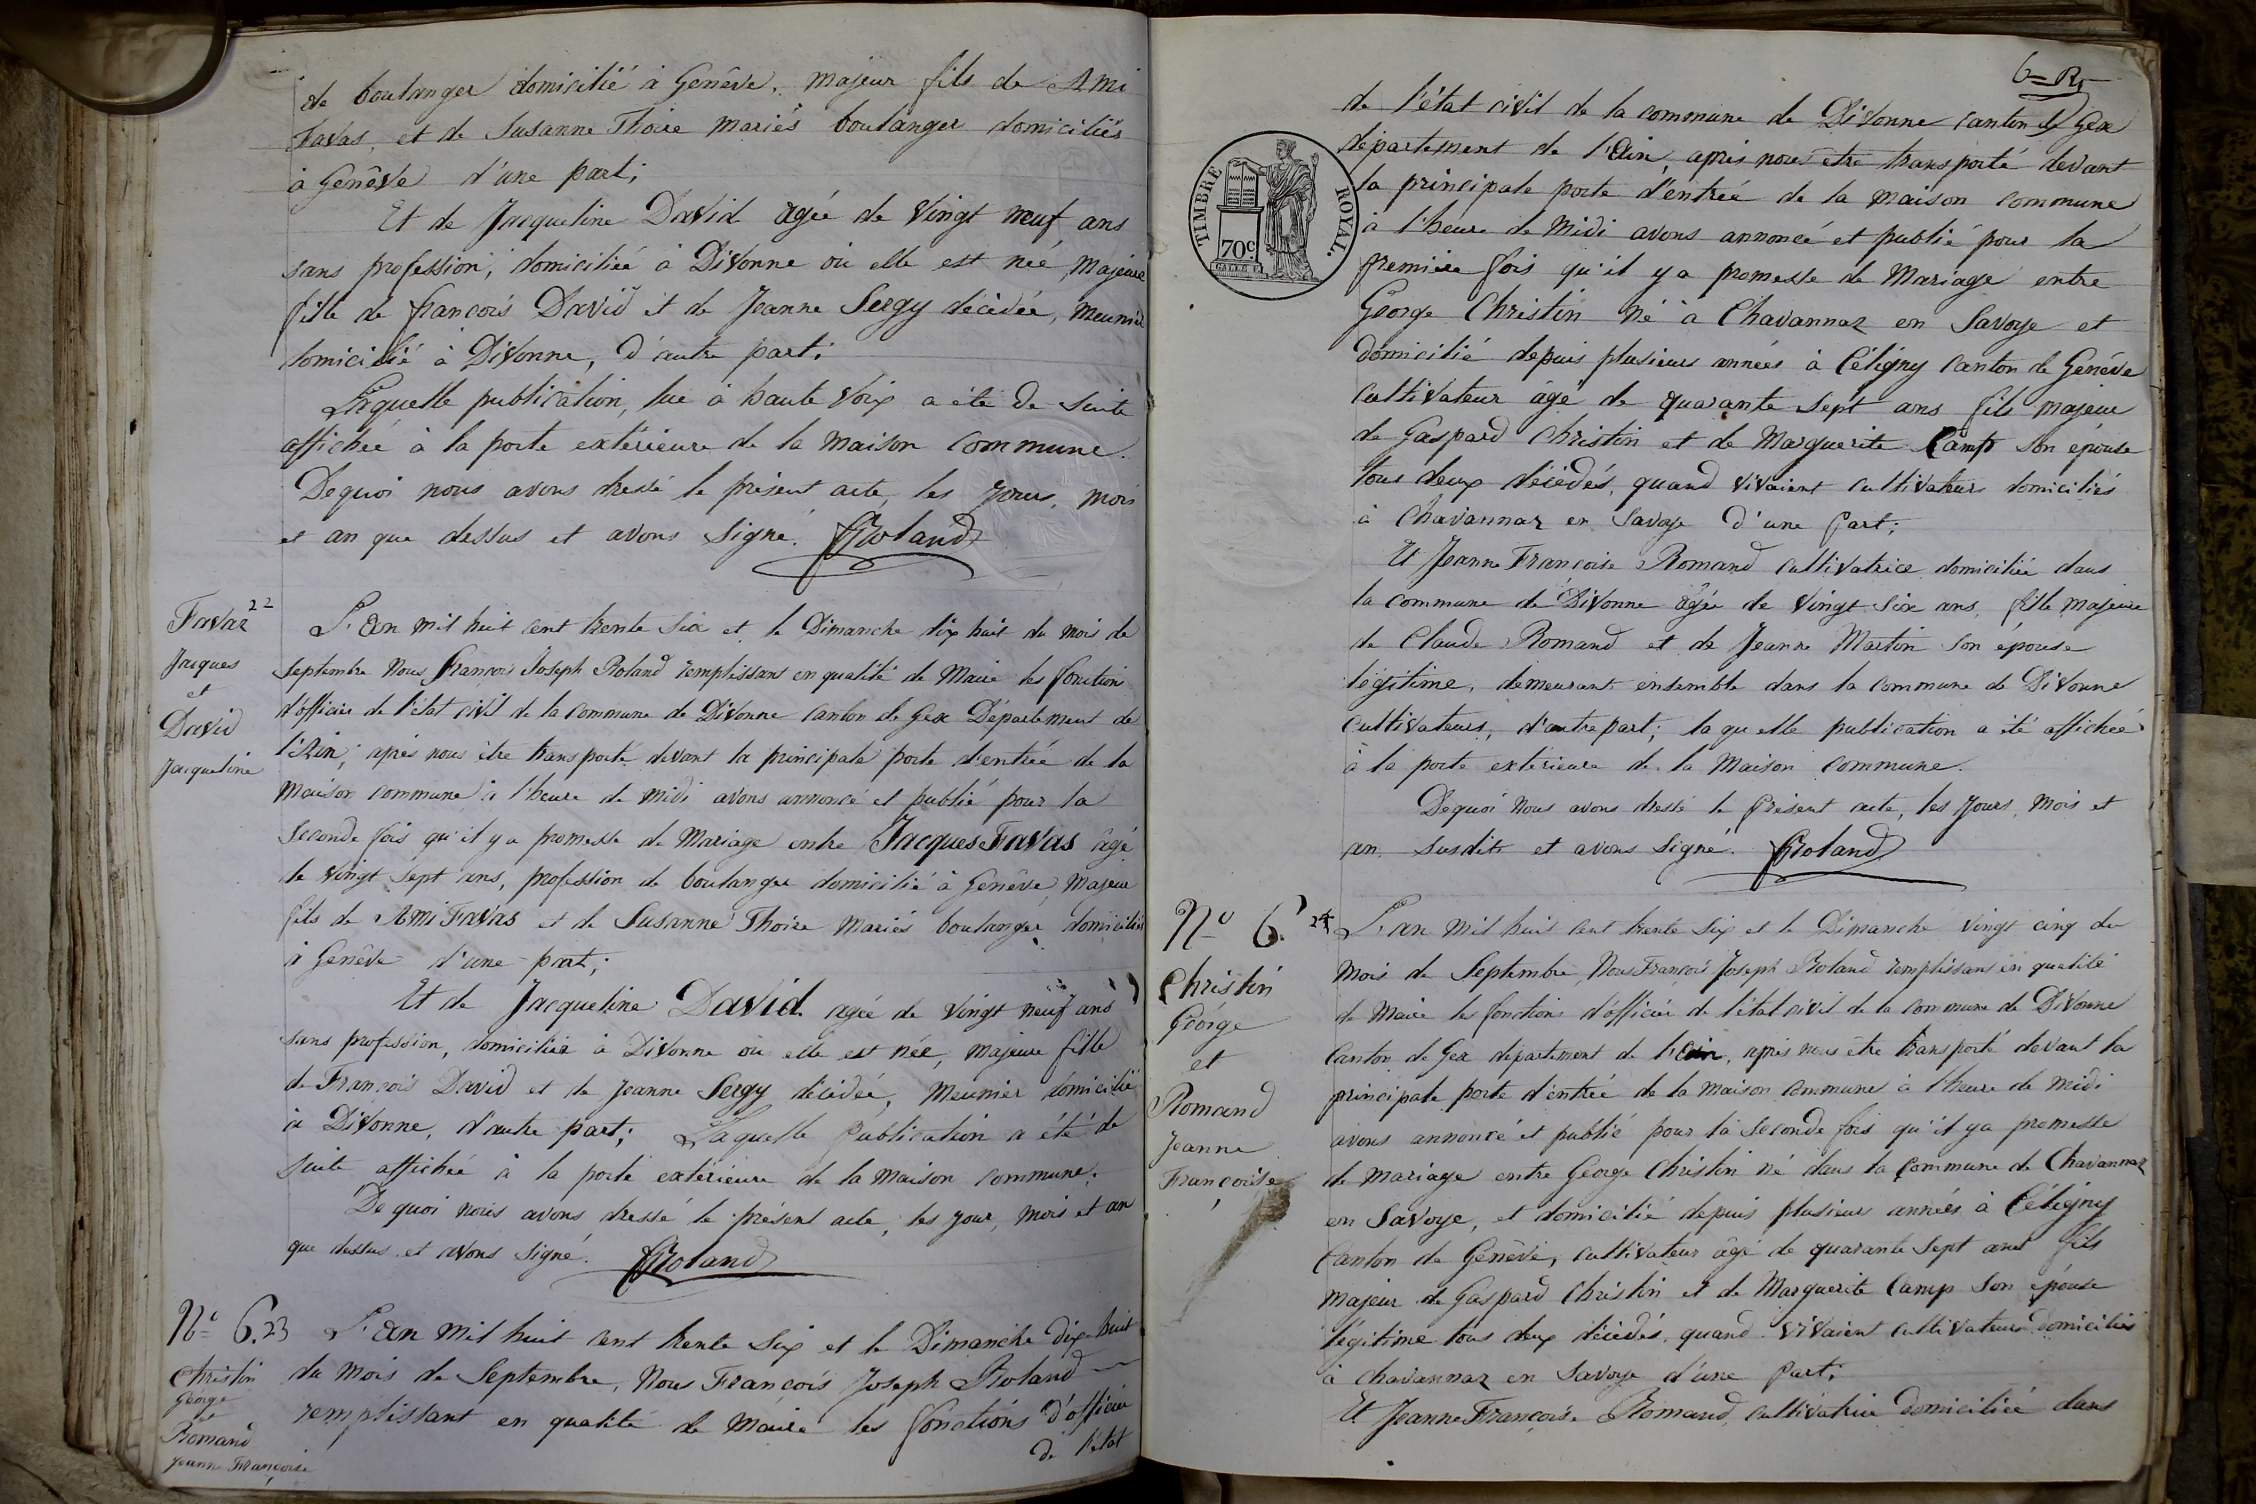 de boulanger domicilié à Genêve, majeur fils de Ami
Favas, et de Susanne Thoire mariés boulanger domiciliés
à Genêve d'une part;
Et de Jacqueline David agée de vingt neuf ans
sans profession, domiciliée à Divonne où elle est née, majeure
fille de françois David et de Jeanne Sergy décédée, meunier
domicilié à Divonne, d'autre part;
Laquelle publication, lue à haute voix a été de suite
affichée à la porte extérieure de la maison commune.
De quoi nous avons dressé le présent acte, les jour, mois
et an que dessus et avons signé. Roland
Favaz 22
Jacques
et
David
Jacqueline
L'an mil huit cent trente six et le Dimanche dix huit du mois de
septembre Nous François Joseph Roland remplissant en qualité de Maire les fonctions
d'officier de l'état civil de la commune de Divonne canton de Gex Département de
l'Ain, après nous être transporté devant la principale porte d'entrée de la
maison commune à l'heure de midi avons annoncé et publié pour la
seconde fois qu'il y a promesse de Mariage entre Jacques Favas âgé
de vingt sept ans, profession de boulanger domicilié à Genêve, majeur
fils de Ami Favas et de Susanne Thoire mariés boulanger domiciliés
à Genêve d'une part;
Et de Jacqueline David agée de vingt neuf ans
sans profession, domiciliée à Divonne où elle est née, majeure fille
de François David et de Jeanne Sergy décédée, meunier domicilié
à Divonne, d'autre part; Laquelle publication a été de
suite affichée à la porte extérieure de la maison commune.
De quoi nous avons dressé le présent acte, les jour, mois et an
que dessus et avons signé. Roland
No 6. 23
Christin
George
et
Romand
Jeanne Françoise
L'an mil huit cent trente six et le Dimanche dix huit
du mois de Septembre, Nous François Joseph Roland
remplissant en qualité de Maire les fonctions d'officier
de l'état
6 = R
de l'état civil de la commune de Divonne canton de Gex
département de l'Ain après nous être transporté devant
la principale porte d'entrée de la maison commune
à l'heure de Midi avons annoncé et publié pour la
première fois qu'il y a promesse de Mariage entre
George Christin né à Chavannaz en Savoye et
domicilié depuis plusieurs années à Céligny canton de Genêve
cultivateur âgé de quarante sept ans fils majeur
de Gaspard Christin et de Marguerite Camp son épouse
tous deux décédés, quand vivaient cultivateurs domiciliés
à Chavannaz en Savoye d'une part;
Et Jeanne Françoise Romand cultivatrice domiciliée dans
la commune de Divonne âgée de vingt six ans, fille majeure
de Claude Romand et de Jeanne Martin son épouse
légitime, demeurant ensemble dans la commune de Divonne
cultivateurs, d'autre part; laquelle publication a été affichée
à la porte extérieure de la Maison commune.
De quoi Nous avons dressé le présent acte, les jours, mois et
an susdits et avons signé. Roland
TIMBRE ROYAL.
70c
No 6. 24
Christin
George
et
Romand
Jeanne
Françoise
L'an mil huit cent trente six et le Dimanche vingt cinq du
mois de Septembre, Nous François Joseph Roland remplissant en qualité
de Maire les fonctions d'officier de l'état civil de la commune de Divonne
Canton de Gex département de l'Ain, après nous être transporté devant la
principale porte d'entrée de la maison commune à l'heure de midi
avons annoncé et publié pour la seconde fois qu'il y a promesse
de mariage entre George Christin né dans la commune de Chavannaz
en Savoye, et domicilié depuis plusieurs années à Céligny
Canton de Genêve, cultivateur âgé de quarante sept ans fils
majeur de Gaspard Christin et de Marguerite Camp son épouse
légitime tous deux décédés, quand vivaient cultivateurs domiciliés
à Chavannaz en Savoye d'une part;
Et Jeanne Françoise Romand, cultivatrice domiciliée dans